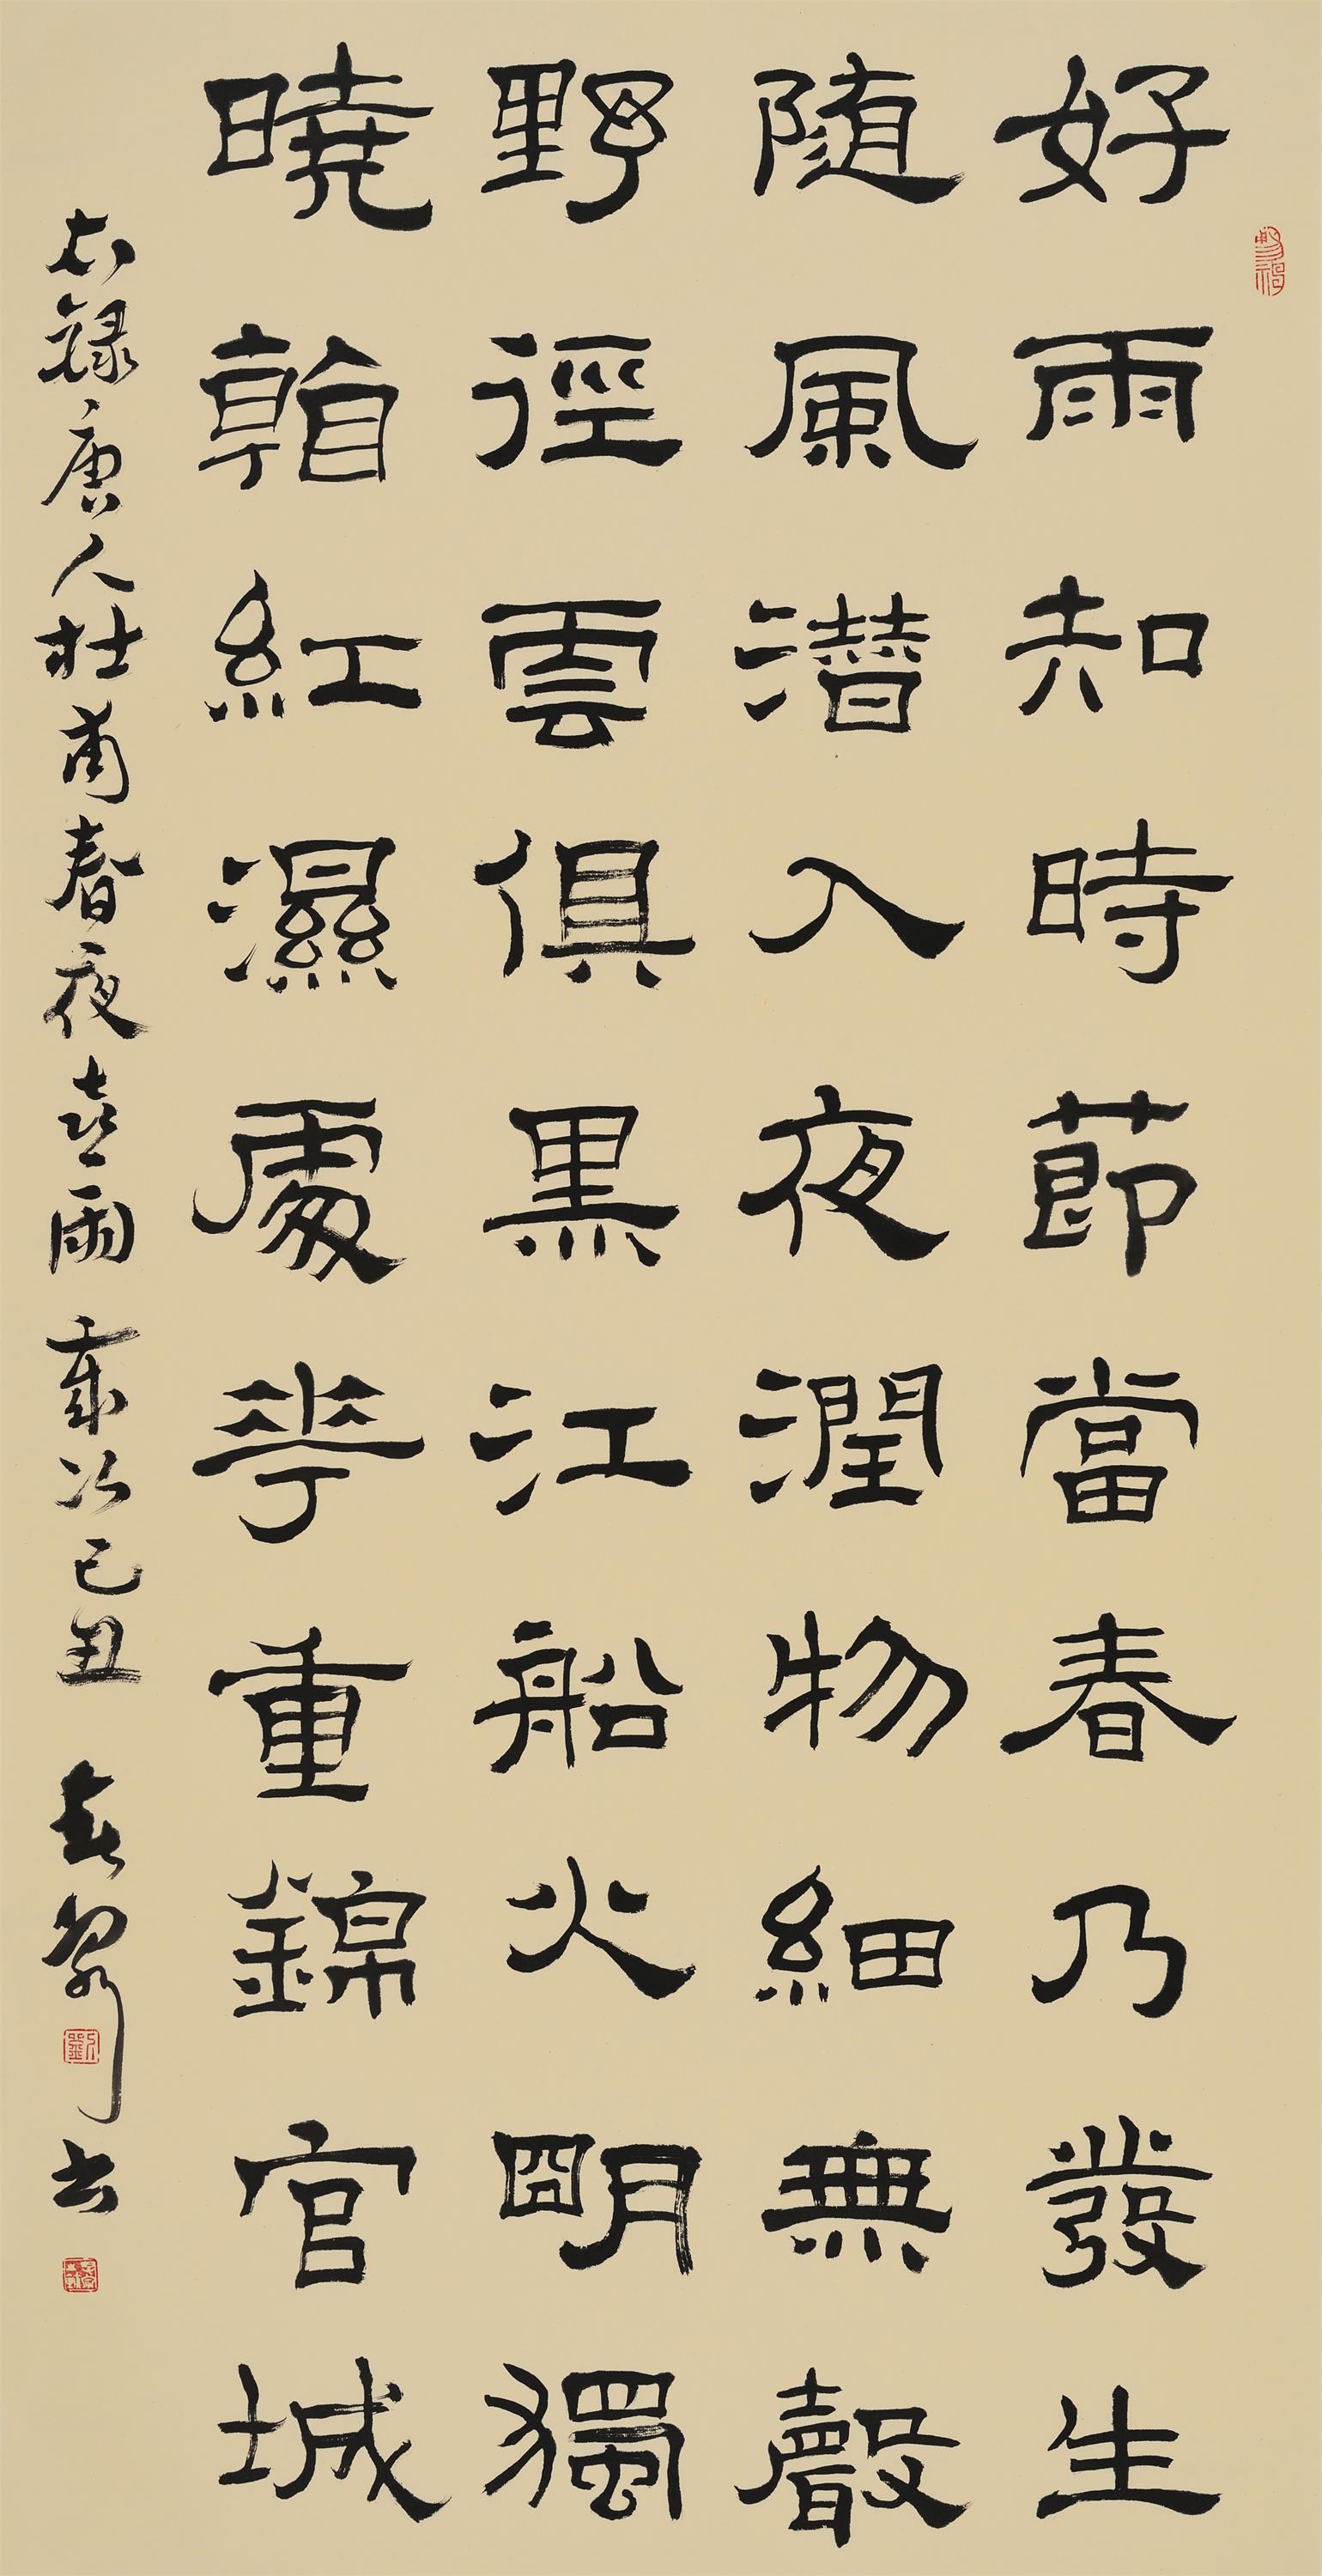 好雨知時節當春乃發生
随風潜入夜潤物細無聲
野徑雲俱黑江船火明獨
曉看紅濕處華重錦官城
右録唐人杜甫春夜喜雨 歲次己丑 書